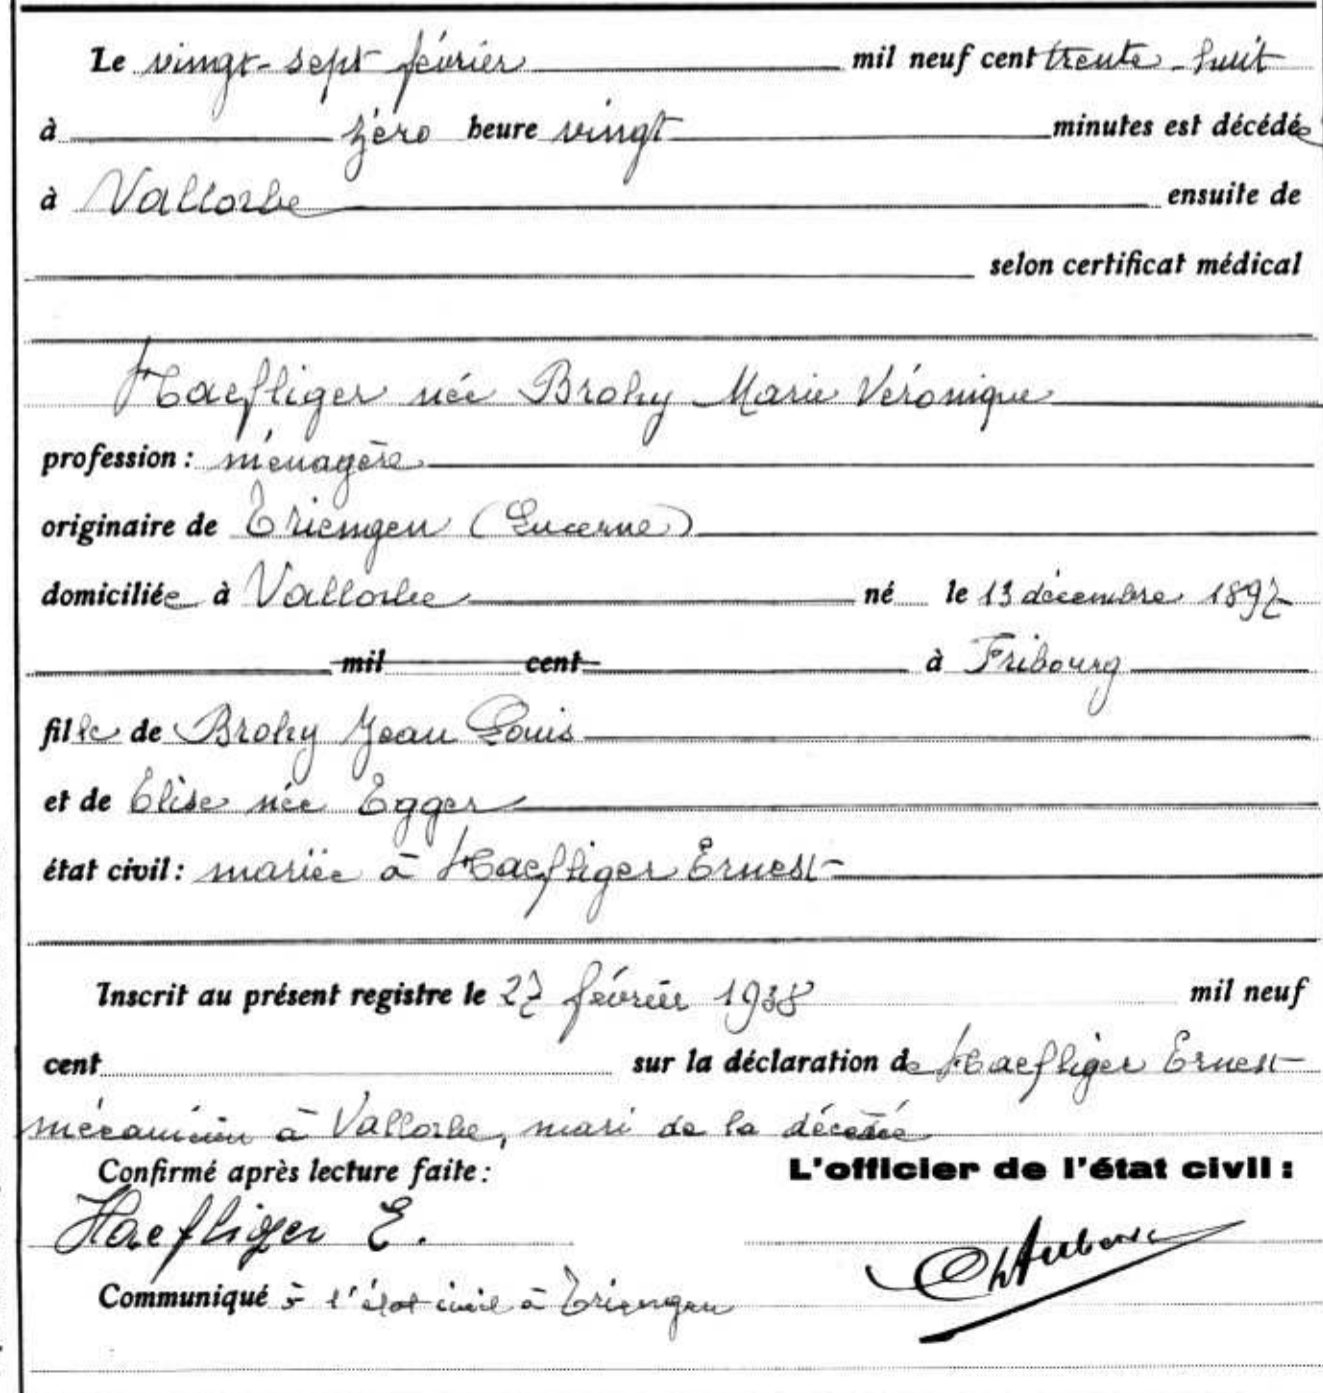 Le vingt-sept février mil neuf cent trente-huit
à zéro heure vingt minutes est décédée
à Vallorbe ensuite de
selon certificat médical
Haefliger née Brohy Marie Véronique
profession: ménagère
originaire de Triengen (Lucerne)
domiciliée à Vallorbe né le 13 décembre 1897
mil cent à Fribourg
fille de Brohy Jean Louis
et de Elise née Egger
état civil: mariée à Haefliger Ernest
Inscrit au présent registre le 27 février 1938 mil neuf
cent sur la déclaration de Haefliger Ernest
mécanicien à Vallorbe, mari de la décédée
Confirmé après lecture faite: L'officier de l'état civil:
Haefliger E.
Communiqué à l'état civil à Triengen